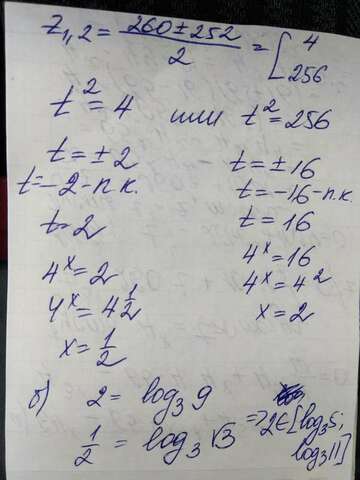 z₁,₂ = (260 ± 252)/2 = [4
256
t² = 4 или t² = 256
t = ±2 t = ±16
t = -2 - п.к. t = -16 - п.к.
t = 2 t = 16
4ˣ = 2 4ˣ = 16
4ˣ = 4^(1/2) 4ˣ = 4²
x = 1/2 x = 2
б) 2 = log₃ 9
1/2 = log₃ √3 => 2 ∈ [log₃ 5;
log₃ 11]